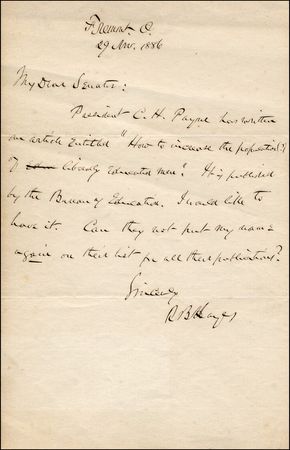 Fremont, O.
29 Nov. 1886
My Dear Senator:
President C. H. Payne has written
an article entitled "How to increase the proportion
of liberally educated men". It is published
by the Bureau of Education. I would like to
have it. Can they not put my name
again on their list for all their publications?
Sincerely
R B Hayes